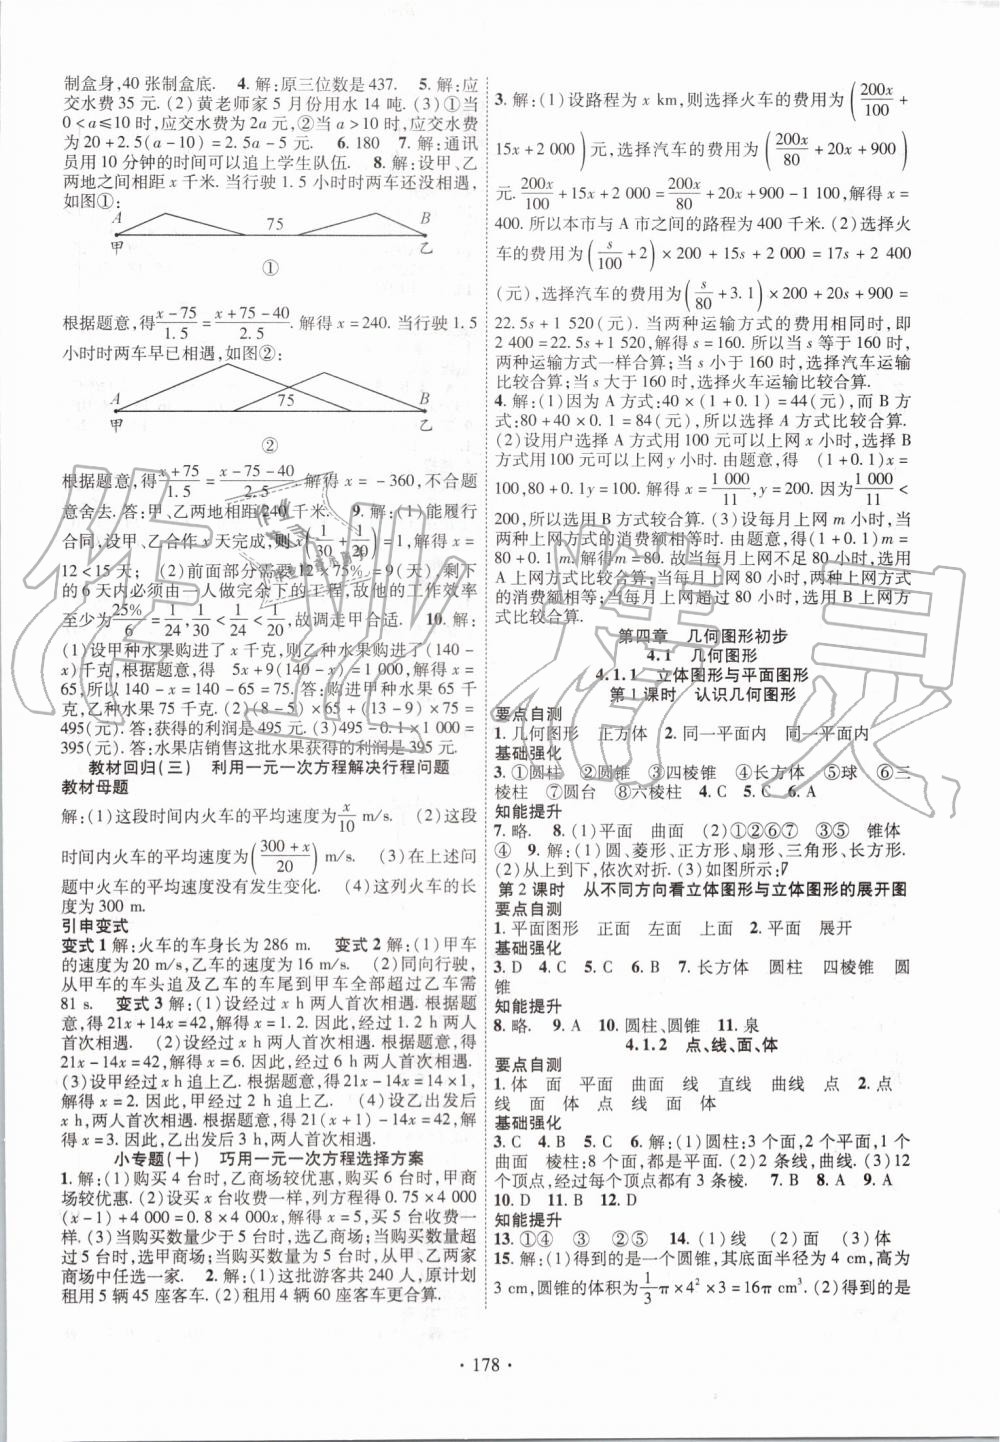 制盒身,40 张制盒底. 4. 解:原三位数是437. 5. 解:应
交水费 35 元. (2) 黄老师家 5 月份用水 14 吨. (3) ①当
0<a≤10 时,应交水费为 2a 元,②当 a>10 时,应交水费
为 20+2.5(a-10)=2.5a-5 元. 6. 180 7. 解:通讯
员用 10 分钟的时间可以追上学生队伍. 8. 解:设甲、乙
两地之间相距 x 千米. 当行驶 1.5 小时时两车还没相遇,
如图①:
A 75 B
甲 乙
①
根据题意,得(x-75)/1.5=(x+75-40)/2.5. 解得 x=240. 当行驶 1.5
小时时两车早已相遇,如图②:
A 75 B
甲 乙
②
根据题意,得(x+75)/1.5=(x-75-40)/2.5. 解得 x=-360,不合题
意舍去. 答:甲、乙两地相距 240 千米. 9. 解:(1)能履行
合同,设甲、乙合作 x 天完成,则 x(1/30+1/20)=1,解得 x=
12<15 天; (2)前面部分需要 12×75%=9(天),剩下
的 6 天内必须由一人做完余下的工程,故他的工作效率
至少为 25%/6=1/24,1/30<1/24<1/20,故调走甲合适. 10. 解:
(1)设甲种水果购进了 x 千克,则乙种水果购进了(140
-x)千克,根据题意,得 5x+9(140-x)=1 000,解得 x=
65,所以 140-x=140-65=75. 所以购进甲种水果 65 千
克,乙种水果 75 千克. (2)(8-5)×65+(13-9)×75=
495(元). 答:获得的利润是 495 元. (3)495-0.1×1 000=
395(元). 答:水果店销售这批水果获得的利润是 395 元.
教材回归(三) 利用一元一次方程解决行程问题
教材母题
解:(1)这段时间内火车的平均速度为 x/10 m/s. (2)这段
时间内火车的平均速度为((300+x)/20) m/s. (3)在上述问
题中火车的平均速度没有发生变化. (4)这列火车的长
度为 300 m.
引申变式
变式 1 解:火车的车身长为 286 m. 变式 2 解:(1)甲车
的速度为 20 m/s,乙车的速度为 16 m/s. (2)同向行驶,
从甲车的车头追及乙车的车尾到甲车全部超过乙车需
81 s. 变式 3 解:(1)设经过 x h 两人首次相遇. 根据题
意,得 21x+14x=42,解得 x=1.2. 因此,经过 1.2 h 两人
首次相遇. (2)设经过 x h 两人首次相遇. 根据题意,得
21x-14x=42,解得 x=6. 因此,经过 6 h 两人首次相遇.
(3)设甲经过 x h 追上乙. 根据题意,得 21x-14x=14×1,
解得 x=2. 因此,甲经过 2 h 追上乙. (4)设乙出发后
x h,两人首次相遇. 根据题意,得 21(x+1)-14x=42,解
得 x=3. 因此,乙出发后 3 h,两人首次相遇.
小专题(十) 巧用一元一次方程选择方案
1. 解:(1)购买 4 台时,乙商场较优惠,购买 6 台时,甲商
场较优惠. (2)设买 x 台收费一样,列方程得 0.75×4 000
(x-1)+4 000=0.8×4 000x,解得 x=5,买 5 台收费一
样. (3)当购买数量少于 5 台时,选乙商场;当购买数量超
过 5 台时,选甲商场;当购买数量为 5 台时,从甲、乙两家
商场中任选一家. 2. 解:(1)这批游客共 240 人,原计划
租用 5 辆 45 座客车. (2)租用 4 辆 60 座客车更合算.
3. 解:(1)设路程为 x km,则选择火车的费用为(200x/100+
15x+2 000)元,选择汽车的费用为(200x/80+20x+900)
元. 200x/100+15x+2 000=200x/80+20x+900-1 100,解得 x=
400. 所以本市与 A 市之间的路程为 400 千米. (2)选择火
车的费用为(s/100+2)×200+15s+2 000=17s+2 400
(元),选择汽车的费用为(s/80+3.1)×200+20s+900=
22.5s+1 520(元). 当两种运输方式的费用相同时,即
2 400=22.5s+1 520. 解得 s=160. 所以当 s 等于 160 时,
两种运输方式一样合算;当 s 小于 160 时,选择汽车运输
比较合算;当 s 大于 160 时,选择火车运输比较合算.
4. 解:(1)因为 A 方式:40×(1+0.1)=44(元),而 B 方
式:80+40×0.1=84(元),所以选择 A 方式比较合算.
(2)设用户选择 A 方式用 100 元可以上网 x 小时,选择 B
方式用 100 元可以上网 y 小时. 由题意,得 (1+0.1)x=
100,80+0.1y=100. 解得 x=1 000/11,y=200. 因为 1 000/11<
200,所以用 B 方式比较合算. (3)设每月上网 m 小时,当
两种上网方式的消费额相等时. 由题意,得(1+0.1)m=
80+0.1m. 解得 m=80. 故当每月上网不足 80 小时,选用
A 上网方式比较合算;当每月上网 80 小时,两种上网方式
的消费额相等;当每月上网超过 80 小时,选用 B 上网方
式比较合算.
第四章 几何图形初步
4.1 几何图形
4.1.1 立体图形与平面图形
第 1 课时 认识几何图形
要点自测
1. 几何图形 正方体 2. 同一平面内 同一平面内
基础强化
3. ①圆柱 ②圆锥 ③四棱锥 ④圆柱 ⑤球 ⑥三
棱柱 ⑦圆台 ⑧六棱柱 4. C 5. C 6. C
知能提升
7. 略. 8. (1)平面 曲面 (2)①②⑥⑦ ③⑤ 锥体
④ 9. 解:(1)圆、菱形、正方形、扇形、三角形、长方形.
(2)从上到下,依次对折. (3)如图所示:
第 2 课时 从不同方向看立体图形与立体图形的展开图
要点自测
1. 平面图形 正面 左面 上面 2. 平面 展开
基础强化
3. D 4. C 5. C 6. A 7. 长方体 圆柱 四棱锥 圆
锥
知能提升
8. 略. 9. A 10. 圆柱、圆锥 11. 泉
4.1.2 点、线、面、体
要点自测
1. 体 面 平面 曲面 线 直线 曲线 点 2. 点
线 面 体 点 线 面 体
基础强化
3. C 4. B 5. C 6. 解:(1)圆柱:3 个面,2 个平面,1 个
曲面 棱柱:8 个面,都是平面. (2)2 条线,曲线. (3)12
个顶点,经过每个顶点都有 3 条棱. 7. B 8. A 9. A
10. D 11. B 12. D
知能提升
13. ①④ ③ ②⑤ 14. (1)线 (2)面 (3)体
15. 解:(1)得到的是一个圆锥,其底面半径为 4 cm,高为
3 cm,圆锥的体积为 1/3π×4²×3=16π cm³. (2)得到的是
· 178 ·
作业精灵